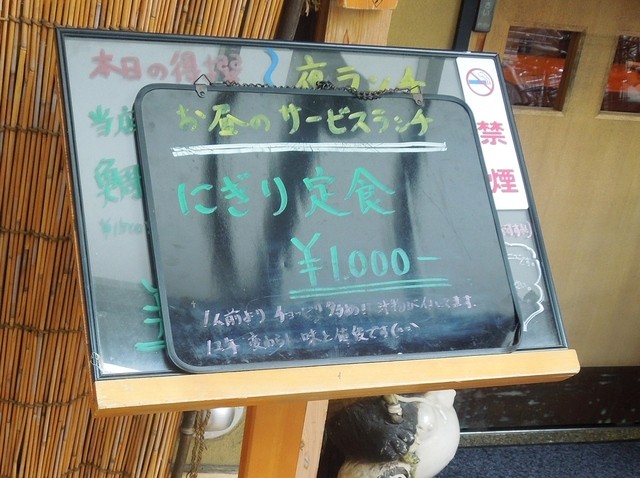 本日の得
夜ランチ
お昼のサービスランチ
にぎり定食
¥1.000-
1人前より チョッピリ多め!! 汁物が付いてます。
12年 変わらない 味と値段です
当店
禁煙